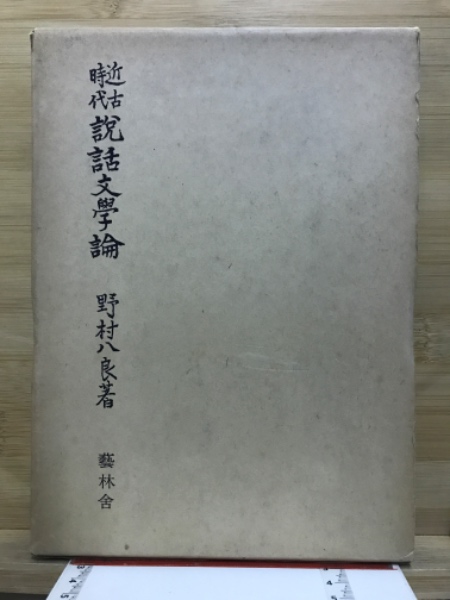 近古時代説話文學論
野村八良著
藝林舍